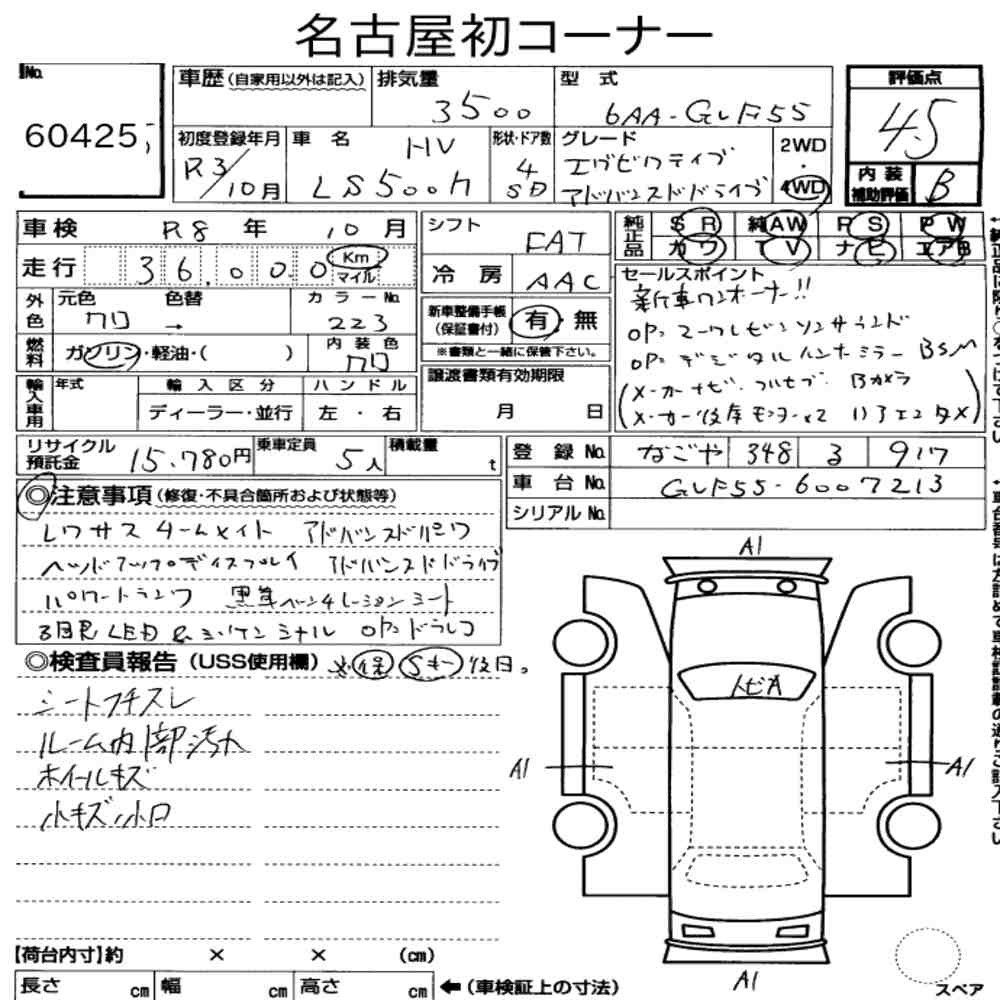 名古屋初コーナー
No.
60425
車歴(自家用以外は記入) 排気量 3500 型式 6AA-GVF55
評価点 4.5
初度登録年月 R3/10月 車名 HV LS500h 形状・ドア数 4 SD グレード エグゼクティブ アドバンスドドライブ 2WD・4WD
内装補助評価 B
車検 R8年10月
走行 36,000 Km マイル
シフト FAT
冷房 AAC
純正品 SR 純AW PS PW
カワ TV ナビ エアB
外色 元色 クロ 色替 → カラーNo. 223
燃料 ガソリン・軽油・( ) 内装色 クロ
新車整備手帳(保証書付) 有・無
※書類と一緒に保管下さい。
譲渡書類有効期限
月 日
セールスポイント
新車ワンオーナー!!
OP:マークレビンソンサラウンド
OP:デジタルインナーミラー BSM
(メーカーナビ フルセグ Bカメラ
メーカー後席モニターx2 リアエンタメ)
輸入車用 年式 輸入区分 ハンドル
ディーラー・並行 左・右
リサイクル預託金 15,780円 乗車定員 5人 積載量 t
登録No. なごや 348 ろ 917
車台No. GVF55-6007213
シリアルNo.
◎注意事項(修復・不具合箇所および状態等)
レクサスチームメイト アドバンスドパーク
ヘッドアップディスプレイ アドバンスドドライブ
パワートランク 黒革ベンチレーションシート
3眼LED & シーケンシャル OP:ドラレコ
◎検査員報告(USS使用欄) 保 Sキー 後日。
シートフチスレ
ルーム内部汚れ
ホイールキズ
小キズ小凹
A1
トビA
A1
A1
A1
【荷台内寸】約 × × (cm)
長さ cm 幅 cm 高さ cm ←(車検証上の寸法)
スペア